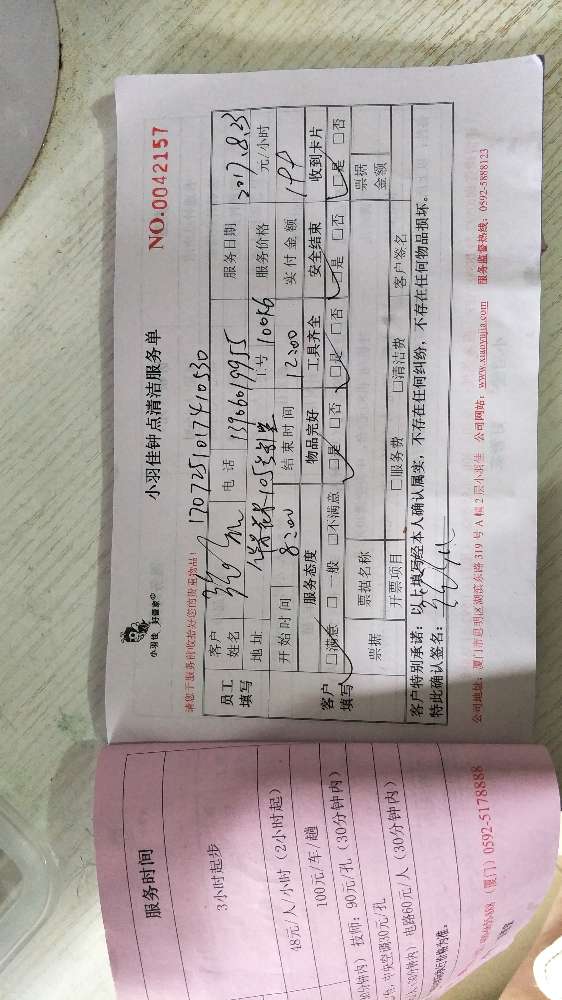 小羽佳 好管家®
小羽佳钟点清洁服务单
NO.0042157
1707251017410530
员工填写 客户姓名 电话 服务日期 2017.8.23
地址 工号 10056 服务价格 元/小时
开始时间 8:00 结束时间 12:00 实付金额 144
客户填写 服务态度 物品完好 工具齐全 安全结束 收到卡片
□满意 □一般 □不满意 □是 □否 □是 □否 □是 □否 □是 □否
票据 票据名称 票据金额
开票项目 □服务费 □清洁费 客户签名
客户特别承诺：以上填写经本人确认属实，不存在任何纠纷，不存在任何物品损坏。
特此确认签名：
公司地址：厦门市思明区湖滨东路319号A幢2层小羽佳 公司网站：www.xiaoyujia.com 服务监督热线：0592-5888123
服务时间
3小时起步
48元/人/小时（2小时起）
100元/车/趟
技师：90元/孔（30分钟内）
30元/孔
电路60元/人（30分钟内）
（厦门）0592-5178888